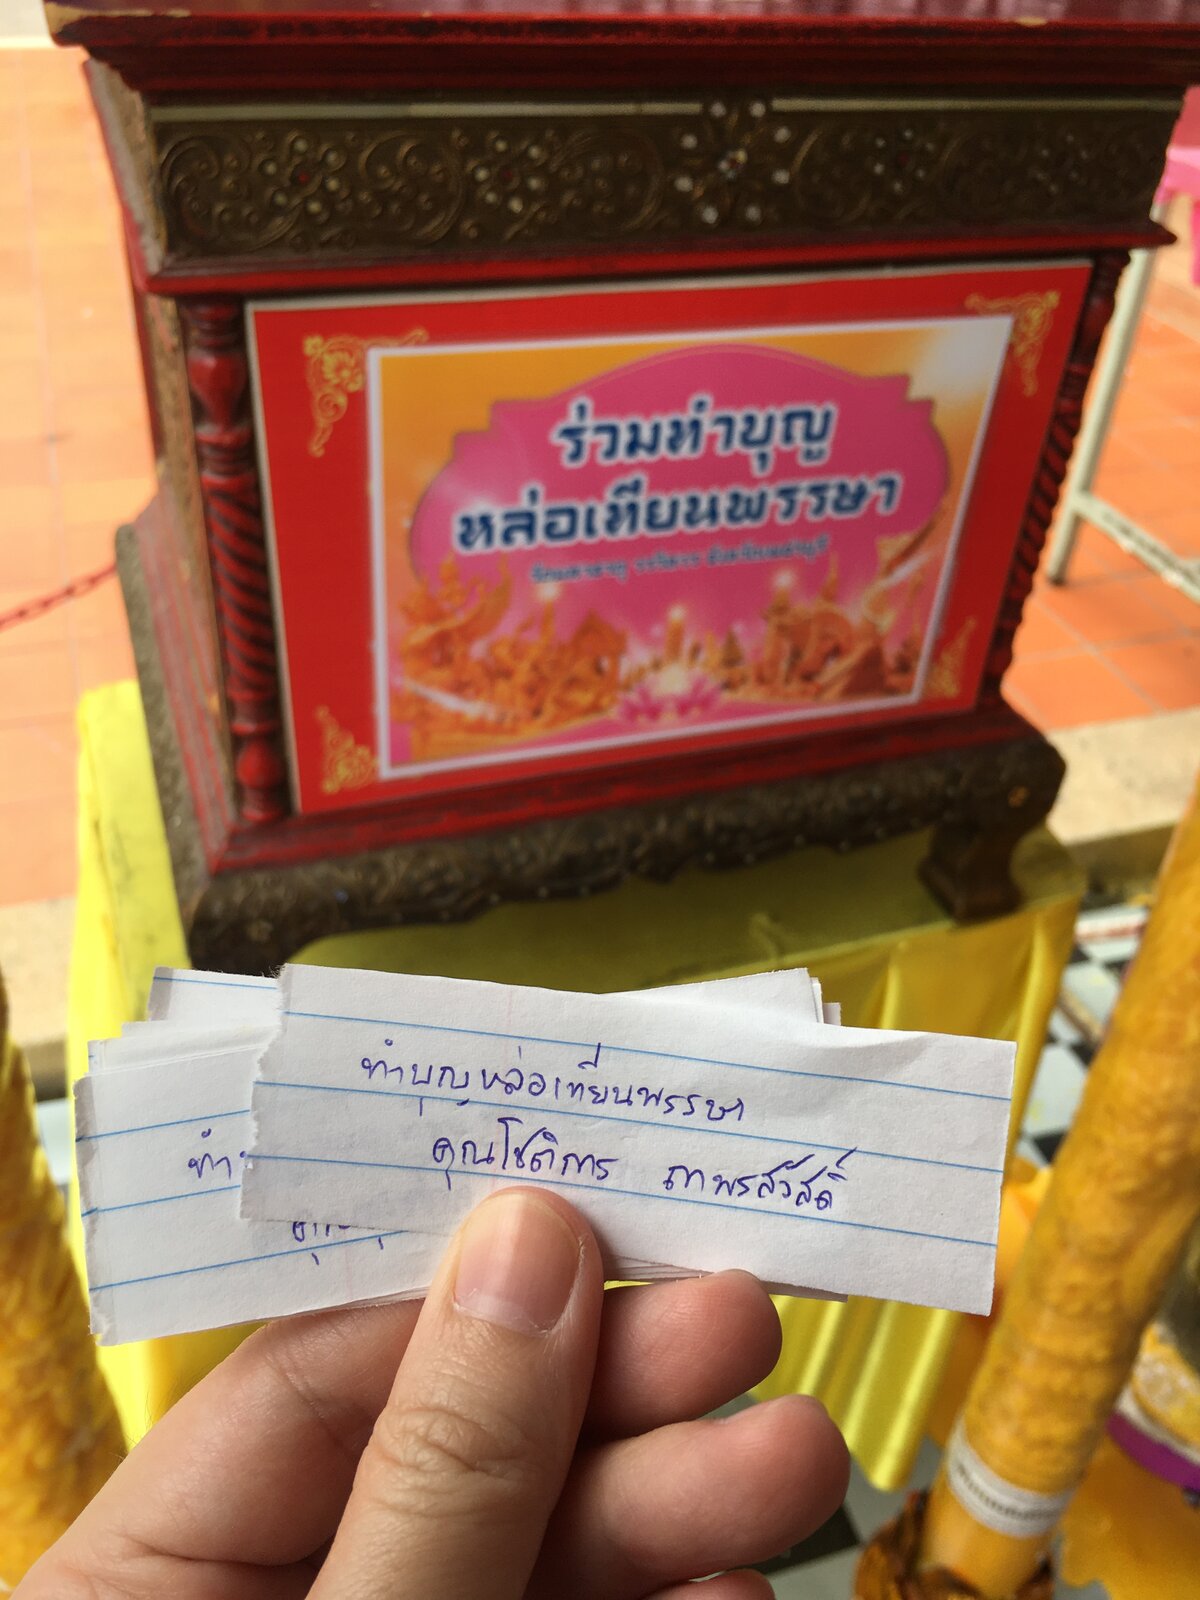 ร่วมทำบุญ
หล่อเทียนพรรษา
ทำบุญหล่อเทียนพรรษา
คุณโชติการ ภาพรสวัสดิ์
ทำ